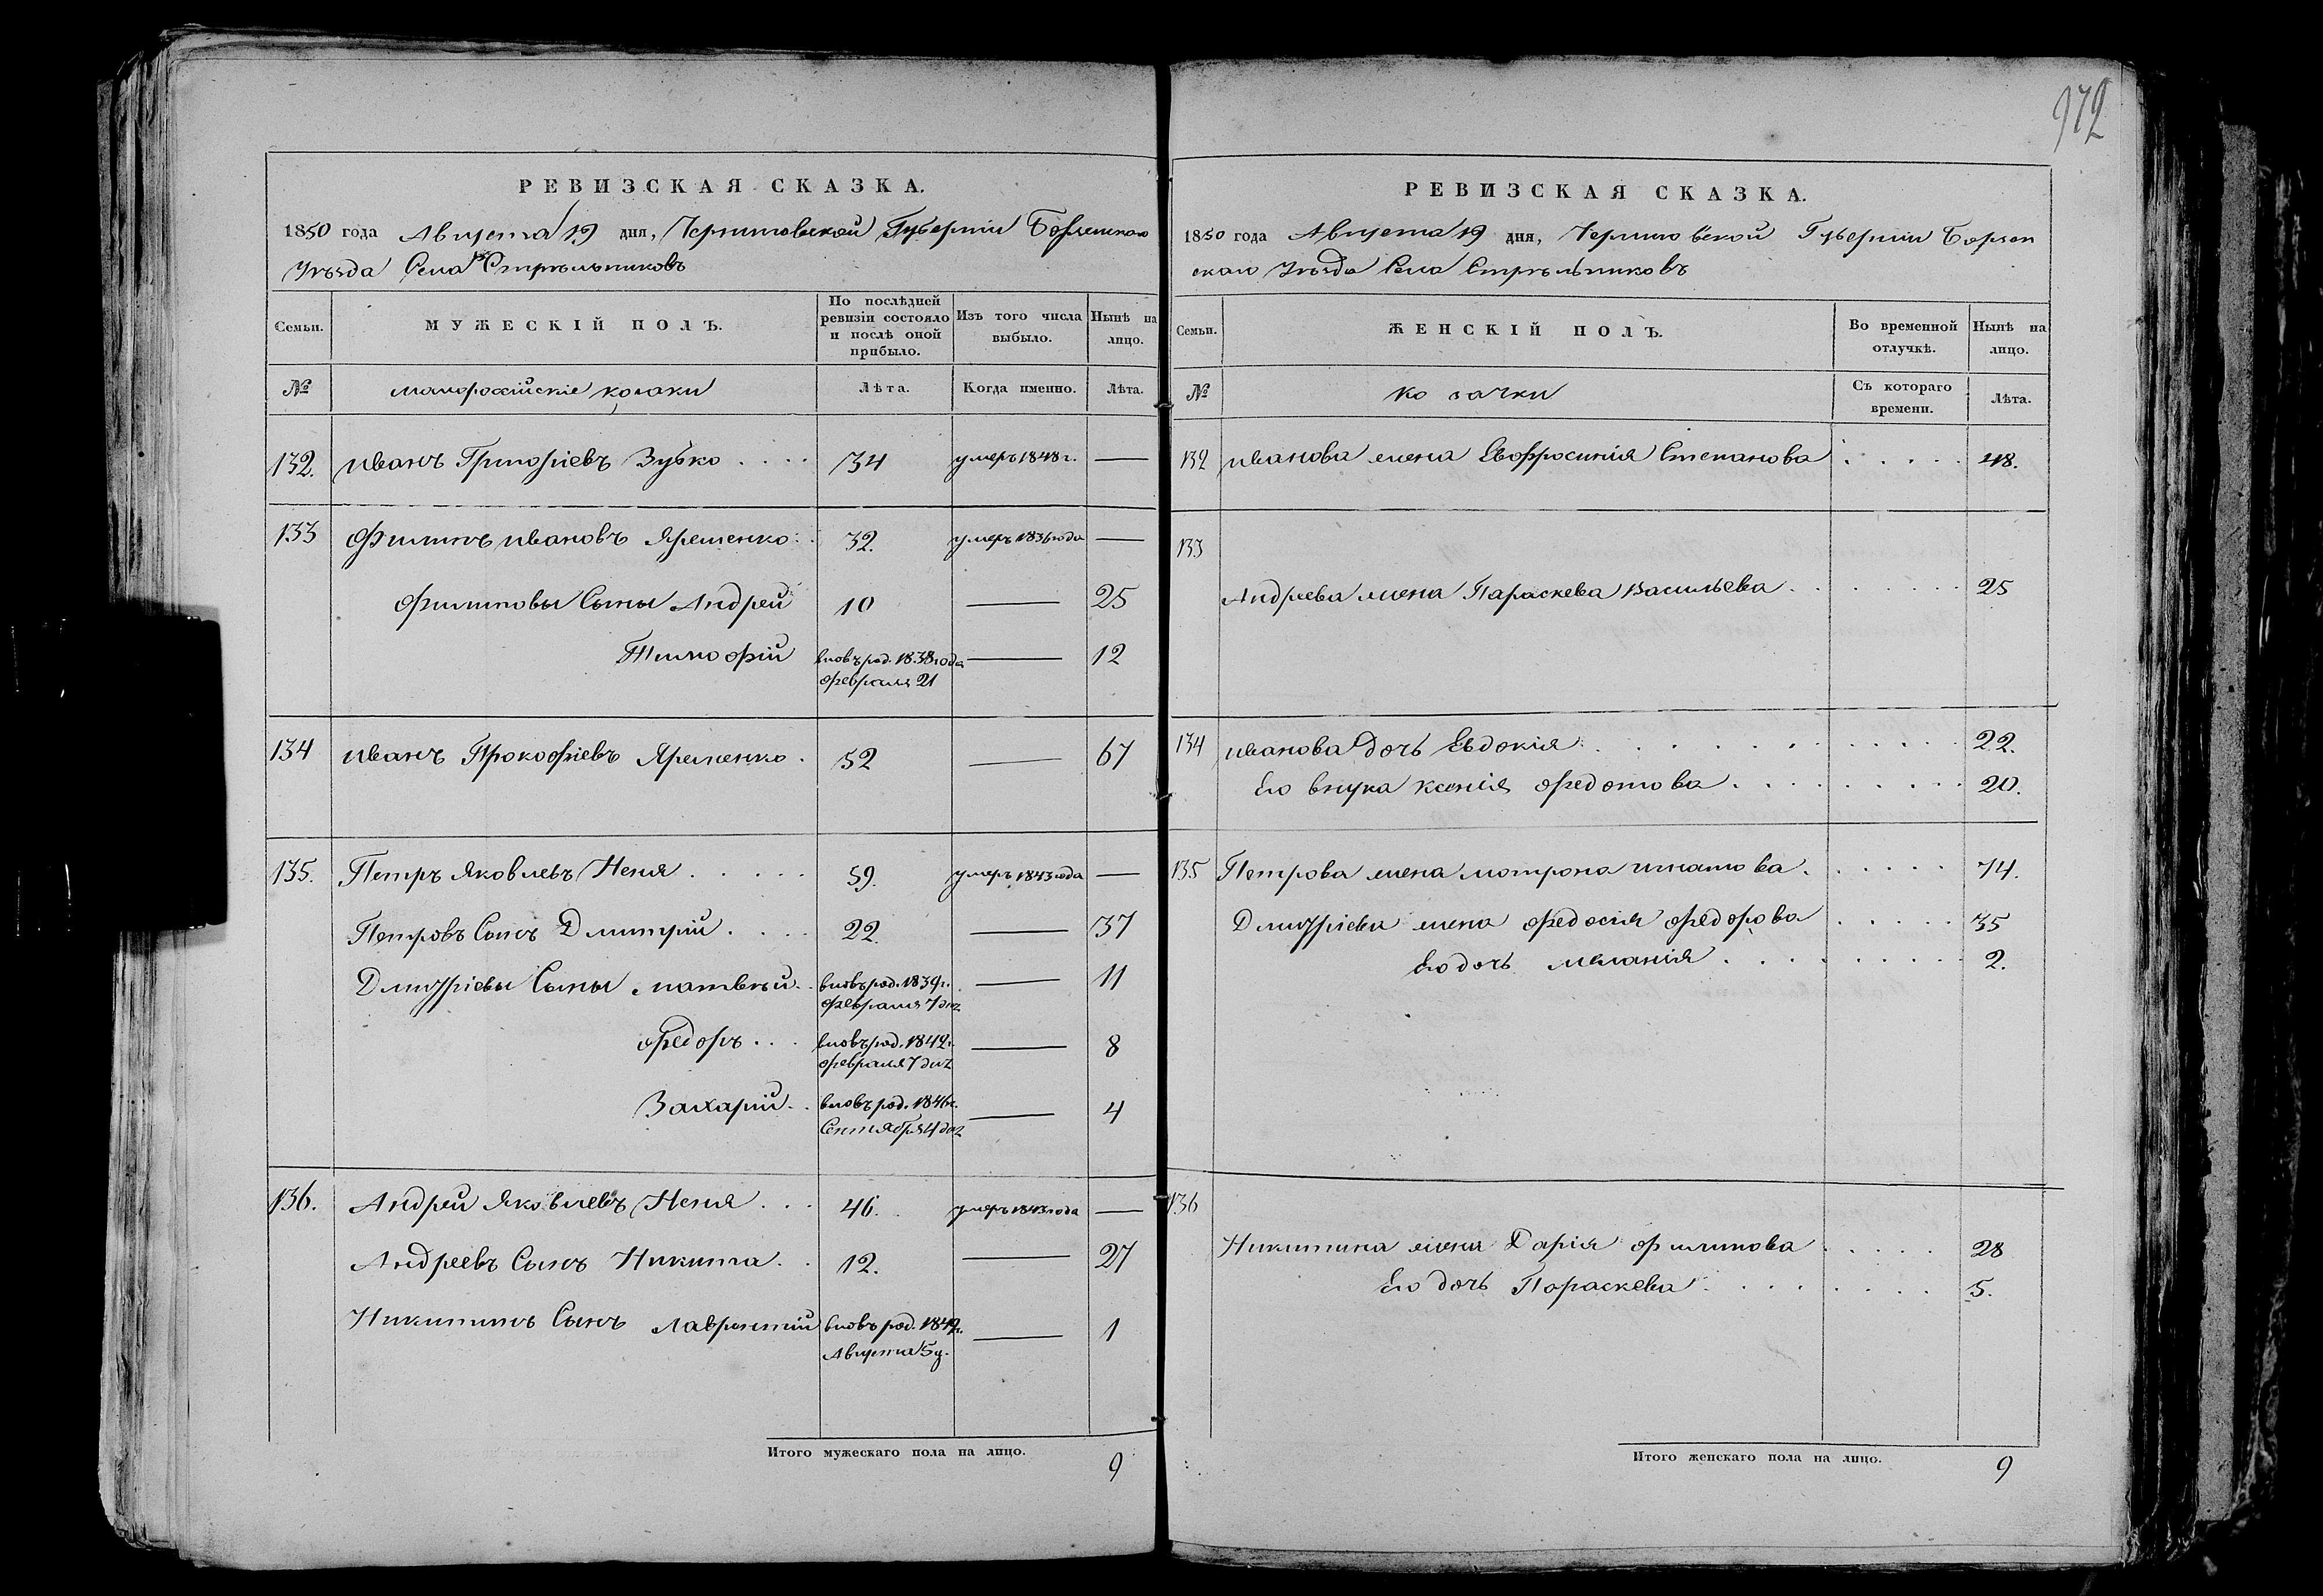 972
РЕВИЗСКАЯ СКАЗКА.
1850 года Августа 19 дня, Черниговской Губернии Борзенского
Уѣзда Села Стрѣльниковъ
Семьи. МУЖЕСКІЙ ПОЛЪ. По послѣдней ревизіи состояло и послѣ оной прибыло. Изъ того числа выбыло. Нынѣ на лицо.
№ малороссійскіе козаки Лѣта. Когда именно. Лѣта.
132. Иванъ Григоріевъ Зубко . . . . 34 умеръ 1848 г. —
133 Филипъ Ивановъ Яременко . 32. умеръ 1836 года —
Филиповы Сыны Андрей 10 — 25
Тимофій вновь род. 1838 года — 12
февраля 21
134 Иванъ Прокофіевъ Яременко . 52 — 67
135. Петръ Яковлевъ Неня . . . . . 59. умеръ 1843 года —
Петровъ Сынъ Дмитрій . . . . 22. — 37
Дмитріевы Сыны Матвѣй . . вновь род. 1839 г. — 11
февраля 7 дня
Федоръ . . . вновь род. 1842 г. — 8
февраля 7 дня
Захарій . . вновь род. 1846 г. — 4
Сентября 4 дня
136. Андрей Яковлевъ Неня . . . 46. умеръ 1843 года —
Андреевъ Сынъ Никита . . 12. — 27
Никитинъ Сынъ Лаврентій вновь род. 1849 г. — 1
Августа 5 д.
Итого мужескаго пола на лицо. 9
РЕВИЗСКАЯ СКАЗКА.
1850 года Августа 19 дня, Черниговской Губернии Борзен
скаго Уѣзда Села Стрѣльниковъ
Семьи. ЖЕНСКІЙ ПОЛЪ. Во временной отлучкѣ. Нынѣ на лицо.
№ козачки Съ котораго времени. Лѣта.
132 Иванова жена Евфросинія Степанова . . . . . 48.
133
Андреева жена Параскева Васильева . . . . . . . 25
134 Иванова дочь Евдокія . . . . . . . . . . . . 22.
Его внука Ксенія Федотова . . . . . . . . . 20.
135 Петрова жена Мотрона Игнатова . . . . . . 74.
Дмитріева жена Федосія Федорова . . . . . 35
Его дочь Меланія . . . . . . . . . 2.
136
Никитина жена Дарія Филипова . . . . . 28
Его дочь Параскева . . . . . . . . 5.
Итого женскаго пола на лицо. 9